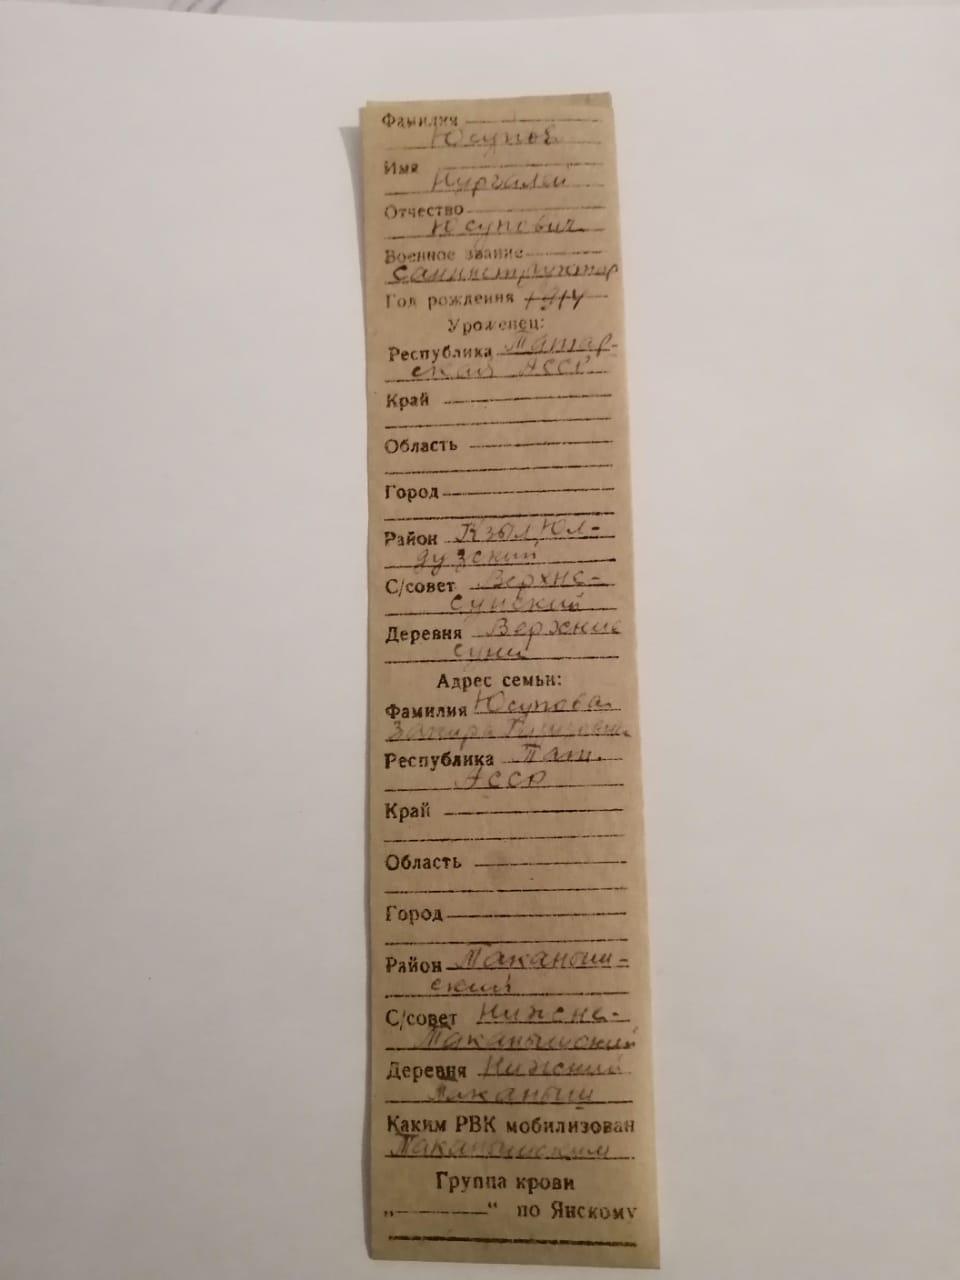 Фамилия
Юсупов
Имя
Нургалей
Отчество
Юсупович
Военное звание
Санинструктор
Год рождения 1914
Уроженец:
Республика Татар-
ская АССР
Край
Область
Город
Район Кзыл Юл-
дузский
С/совет Верхне-
сунский
Деревня Верхние
суни
Адрес семьи:
Фамилия Юсупова
Республика Тат.
АССР
Край
Область
Город
Район Таканыш-
ский
С/совет Нижне-
Таканышский
Деревня Нижний
Таканыш
Каким РВК мобилизован
Таканышским
Группа крови
„ “ по Янскому